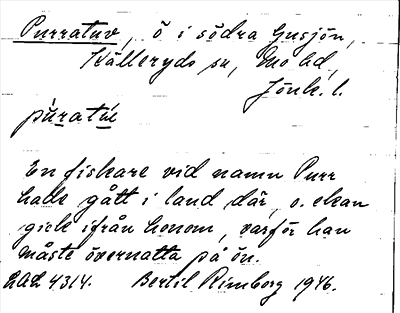 Purratuv, ö i södra Gusjön,
Källeryds sn, Mo hd,
Jönk. l.
pùratú
En fiskare vid namn Purr
hade gått i land där, o. ekan
gick ifrån honom, varför han
måste övernatta på ön.
ULL 4314. Bertil Rimborg 1946.